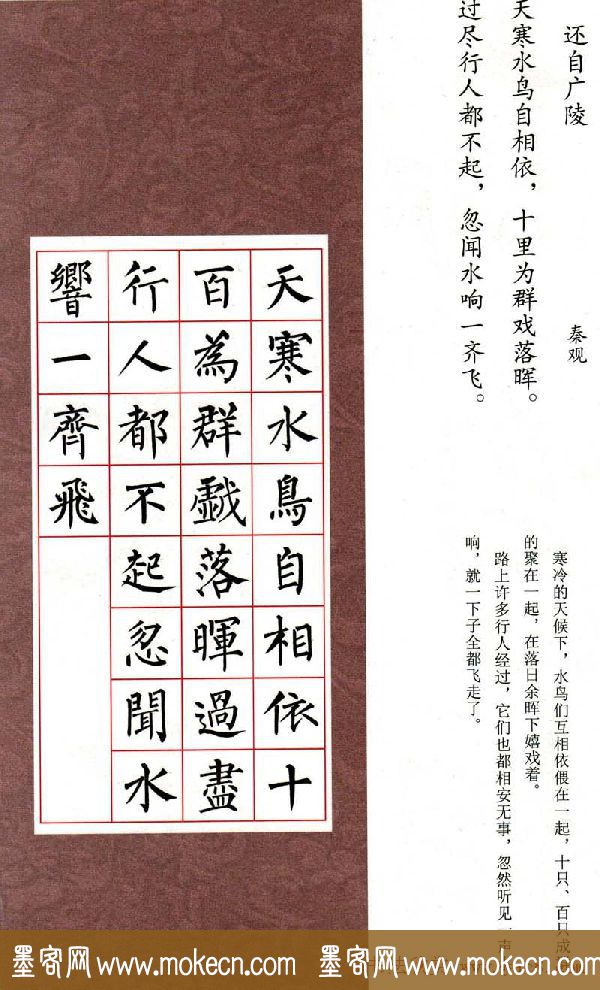 还自广陵
秦观
天寒水鸟自相依，十里为群戏落晖。
过尽行人都不起，忽闻水响一齐飞。
寒冷的天候下，水鸟们互相依偎在一起，十只、百只成
的聚在一起，在落日余晖下嬉戏着。
路上许多行人经过，它们也都相安无事，忽然听见一声
响，就一下子全都飞走了。
天寒水鳥自相依十
百為群戲落暉過盡
行人都不起忽聞水
響一齊飛
墨客网www.mokecn.com 墨客网www.mokecn.com